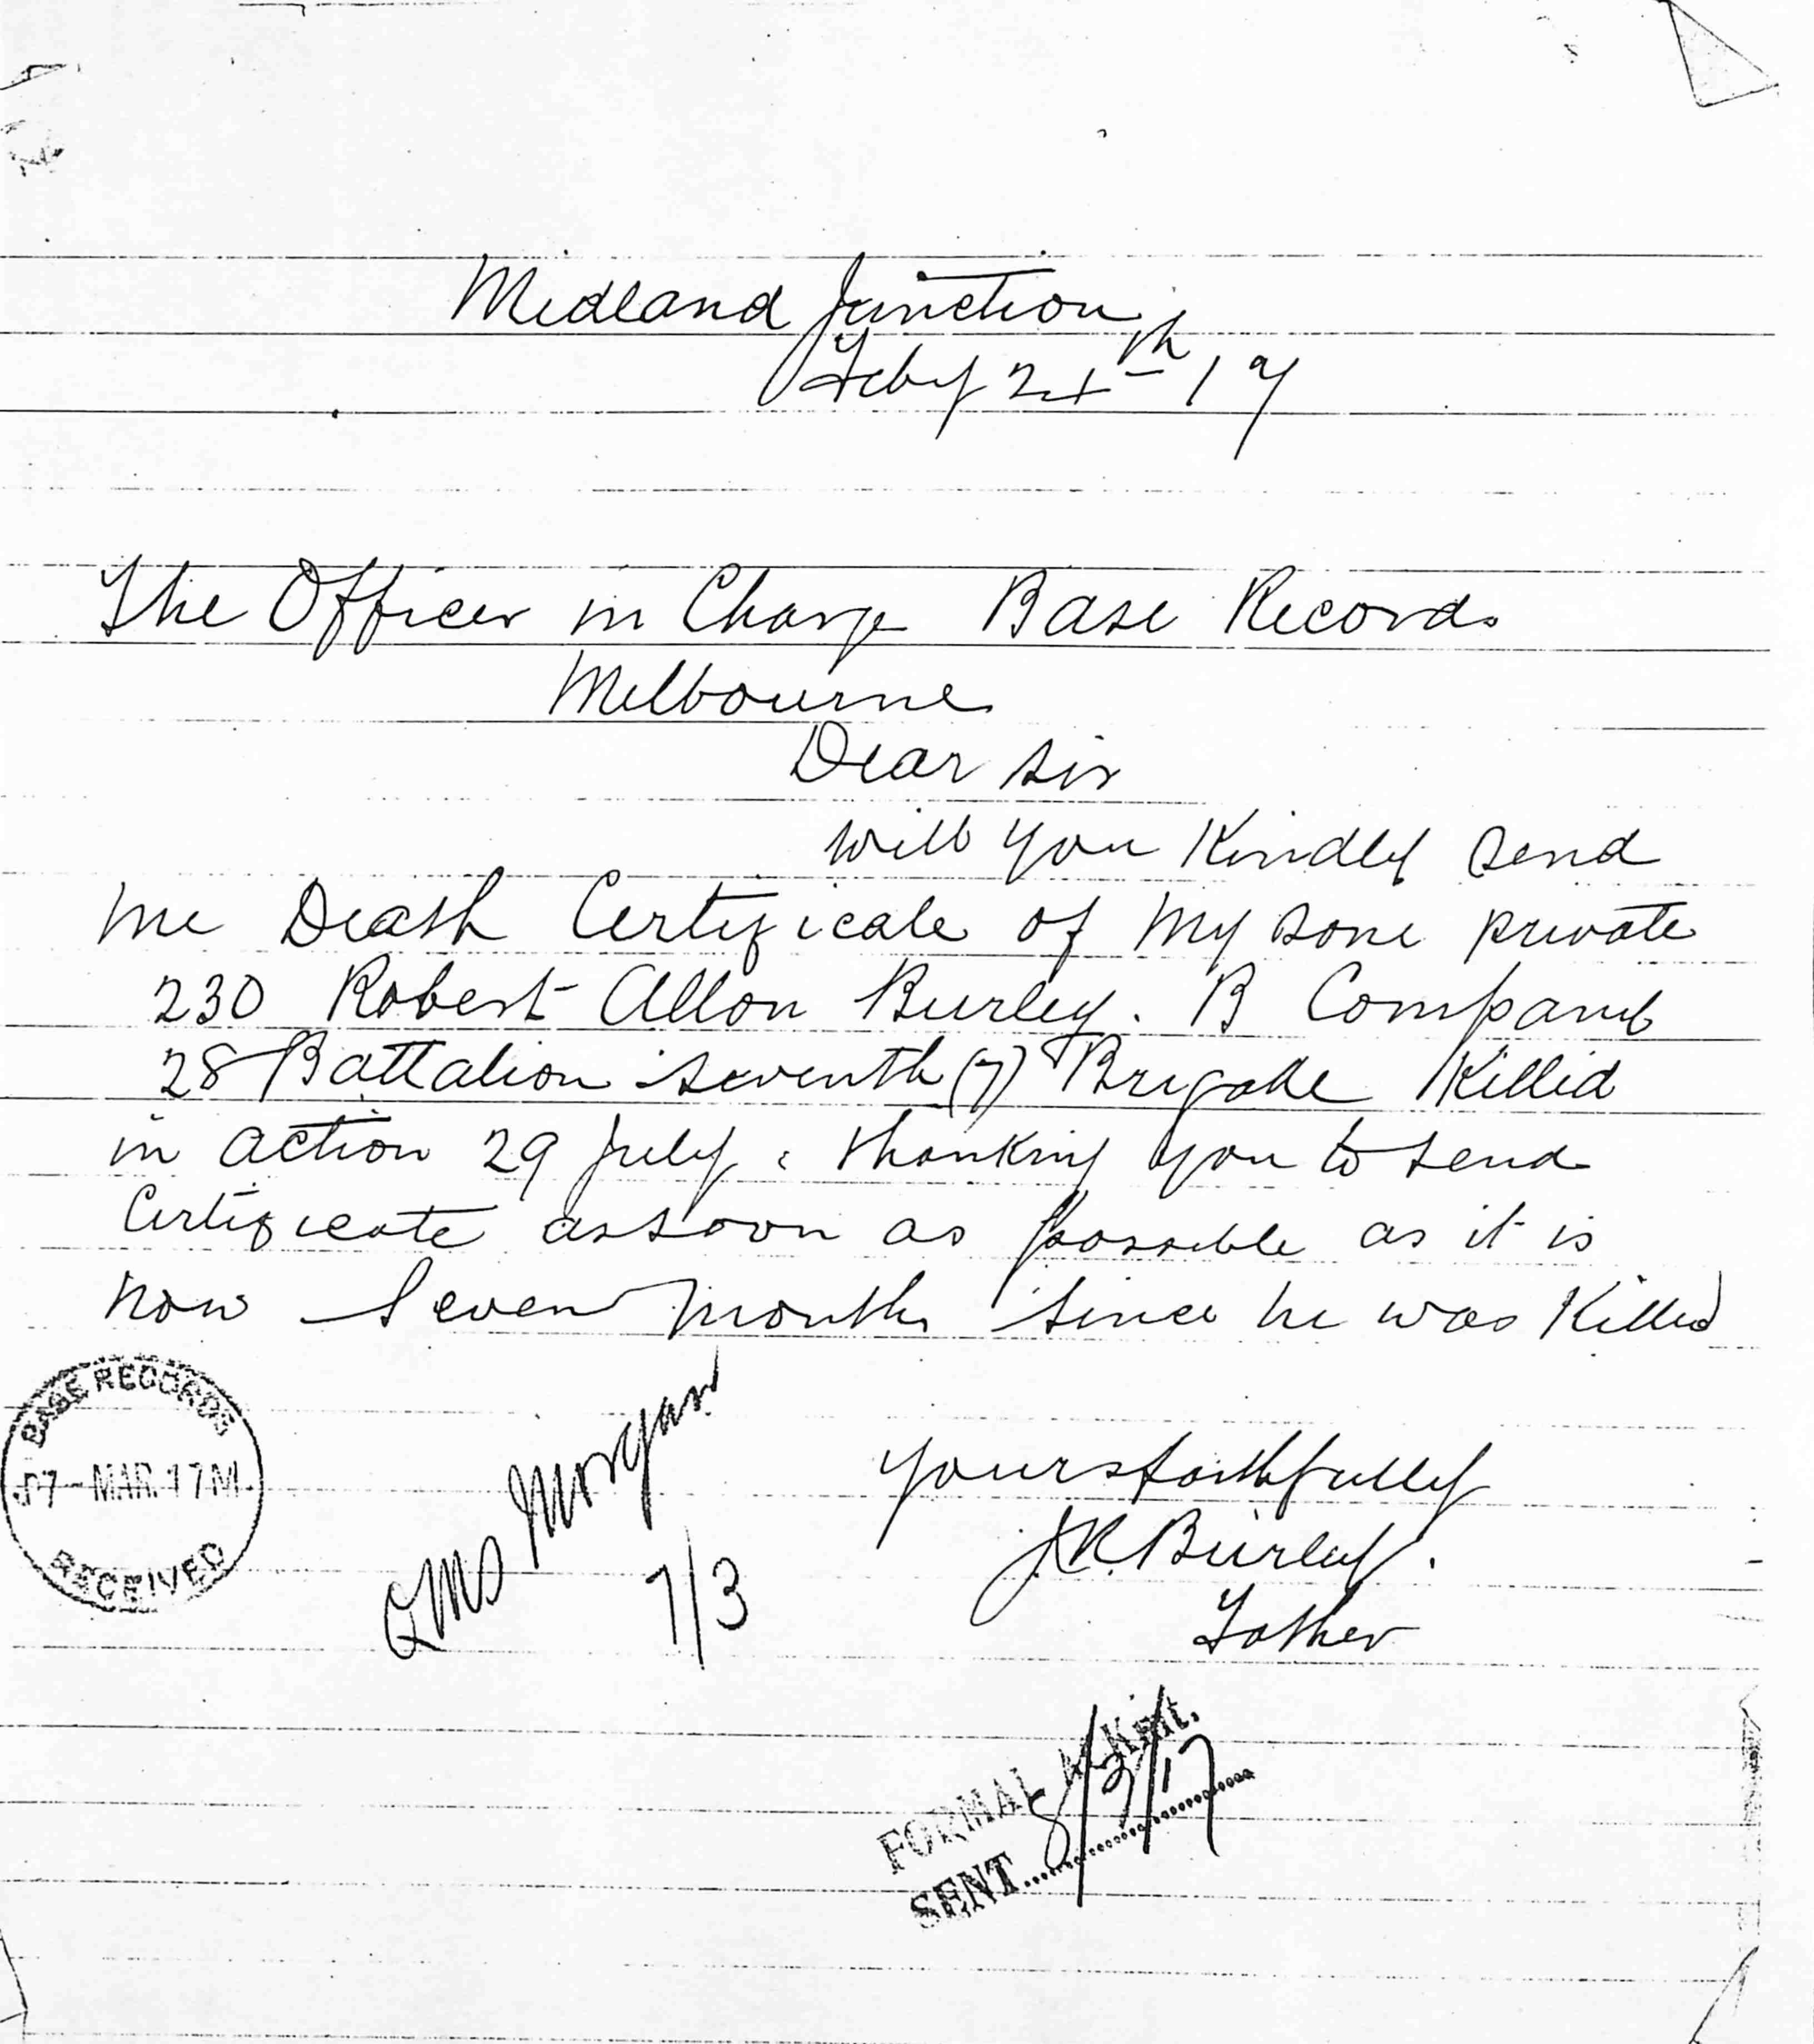 Midland Junction
Feby 21th 17
The Officer in Charge Base Records
Melbourne
Dear Sir
Will you Kindly Send
me Death Certificate of My Sone private
230 Robert Allon Burley. B Company
28 Battalion Seventh (7) Brigade Killed
in action 29 July, thanking you to Send
Certificate as soon as possible as it is
now Seven months since he was Killed
BASE RECORDS
7-MAR.17 M.
RECEIVED
QMS Morgan
7/3
yours faithfully
J.R. Burley.
Father
FORMAL
SENT 8/3/17